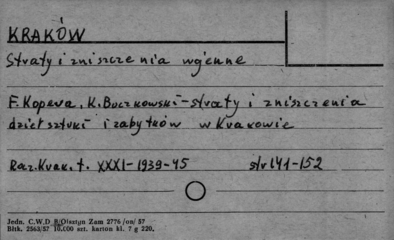 KRAKÓW
Straty i zniszczenia wojenne
F. Kopera, K. Buczkowski - straty i zniszczenia
dzieł sztuki i zabytków w Krakowie
Roz. Krak. t. XXXI - 1939-45 str 141-152
Jedn. C.W.D R/Olsztyn Zam 2776 /on/ 57
Bltk. 2563/57 10.000 szt. karton kl. 7 g 220.